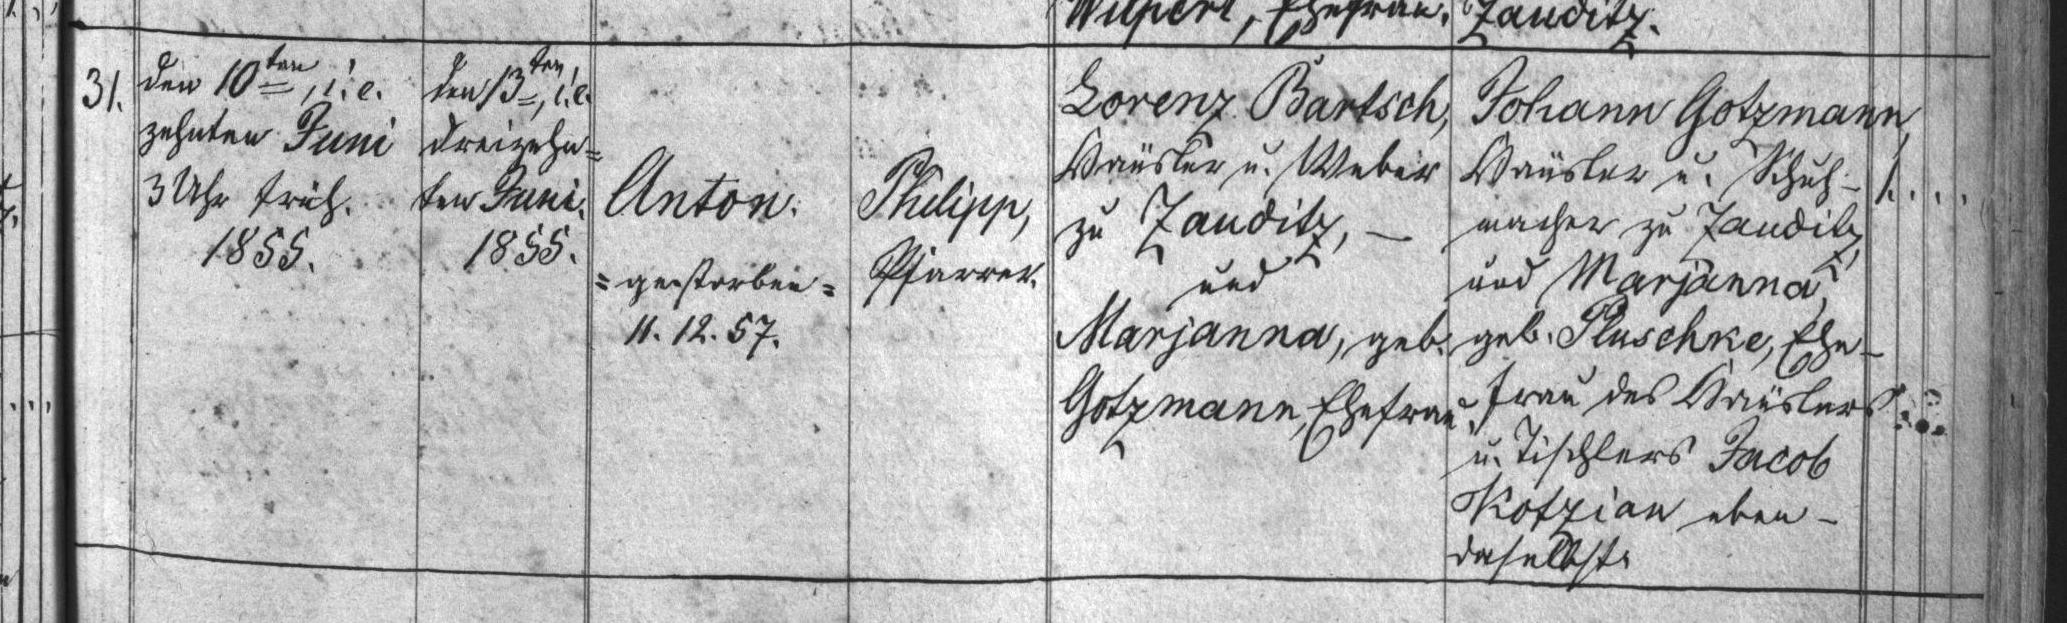 Wilpert, Ehefrau.
Zauditz.
31.
den 10ten, i. e.
zehnten Juni
3 Uhr früh.
1855.
den 13ten, i. e.
dreizehn=
ten Juni.
1855.
Anton.
= gestorben =
11. 12. 57.
Philipp,
Pfarrer.
Lorenz Bartsch,
Häusler u. Weber
zu Zauditz, —
und
Marjanna, geb.
Gotzmann, Ehefrau.
Johann Gotzmann,
Häusler u. Schuh-
macher zu Zauditz,
und Marjanna,
geb. Pluschke, Ehe-
frau des Häuslers
u. Tischlers Jacob
Kotzian eben-
daselbst.
1. . . .